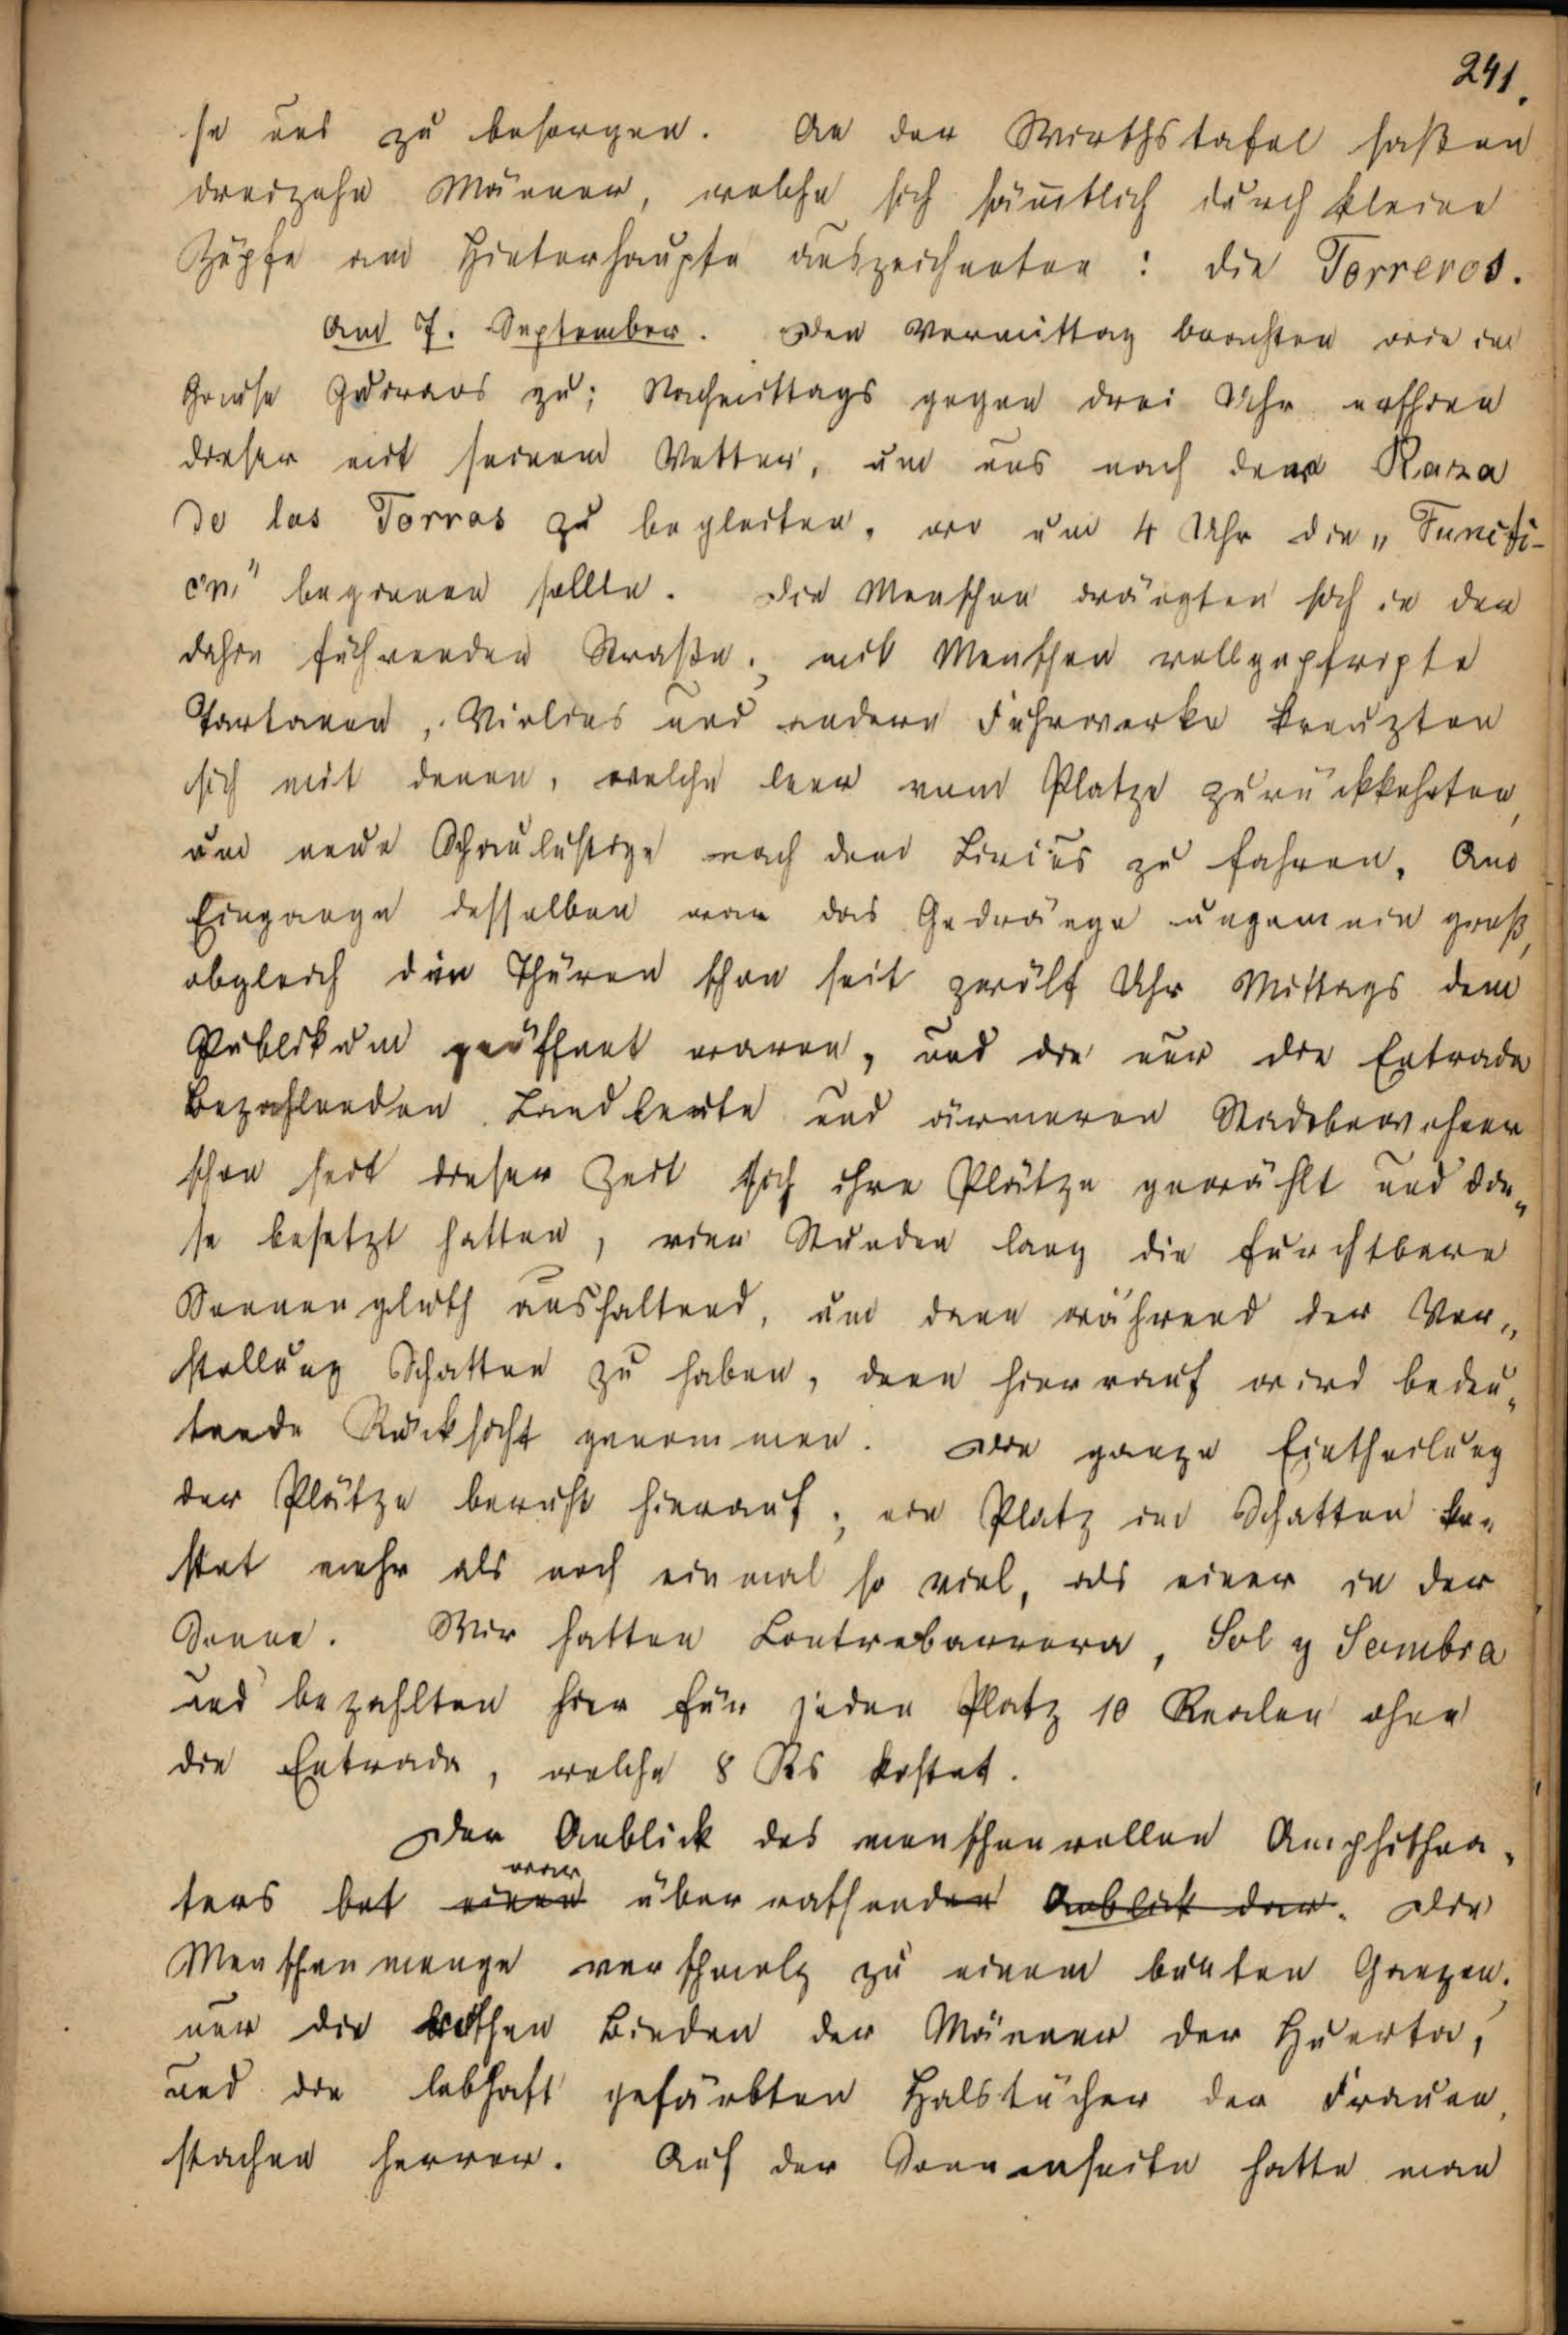 241.
se uns zu besorgen. An der Wirthstafel saßen
dreizehn Männer, welche sich sämtlich durch kleine
Zöpfe am Hinterhaupte auszeichneten: die Torreros.
Am 7. September. Den Vormittag brachten wir im
Hause Guiraos zu; Nachmittags gegen drei Uhr erschien
dieser mit seinem Vetter, um uns nach dem Raza
de los Torros zu begleiten, wo um 4 Uhr die „Functi-
on" beginnen sollte. Die Menschen drängten sich in der
dahin führenden Straße; mit Menschen vollgepfropfte
Tartanen, Violins und andere Fuhrwerke kreuzten
sich mit denen, welche leer vom Platze zurückkehrten,
um neue Schaulustige nach dem Circus zu fahren. Am
Eingange desselben war das Gedränge ungemein groß,
obgleich die Thüren schon seit zwölf Uhr Mittags dem
Publikum geöffnet waren, und die nur die Entrada
Bezahlenden Landleute und ärmeren Stadtbewohner
schon seit dieser Zeit sich ihre Plätze gewählt und die„
se besetzt hatten, vier Stunden lang die furchtbare
Sonnengluth aushaltend, um dann während der Vor„
stellung Schatten zu haben, denn hierauf wird bedeu„
tende Rücksicht genommen. Die ganze Eintheilung
der Plätze beruht hierauf; ein Platz im Schatten ko„
stet mehr als noch einmal so viel, als einer in der
Sonne. Wir hatten Contrebarrera, Sol y Sombra
und bezahlten hier für jeden Platz 10 Realen ohne
die Entrada, welche 8 Rs kostet.
Der Anblick des menschenvollen Amphithea„
war
ters bot einen überraschenden Anblick dar. Die
Menschenmenge verschmolz zu einem bunten Ganzen;
nur die rothen Binden der Männer der Huerta,
und die lebhaft gefärbten Halstücher der Frauen,
stachen hervor. Auf der Sonnenseite hatte man